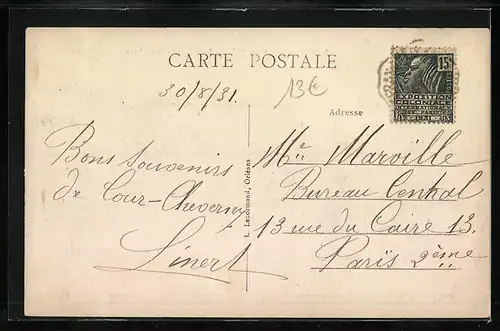 CARTE POSTALE
30/8/31.
13€
Adresse
15c
EXPOSITION
COLONIALE
INTERNATIONALE
Bons souvenirs
de Cour-Cheverny
Linert
L. Lecormand, Orléans
Mr Marville
Bureau Central
13 rue du Caire 13.
Paris 2ème